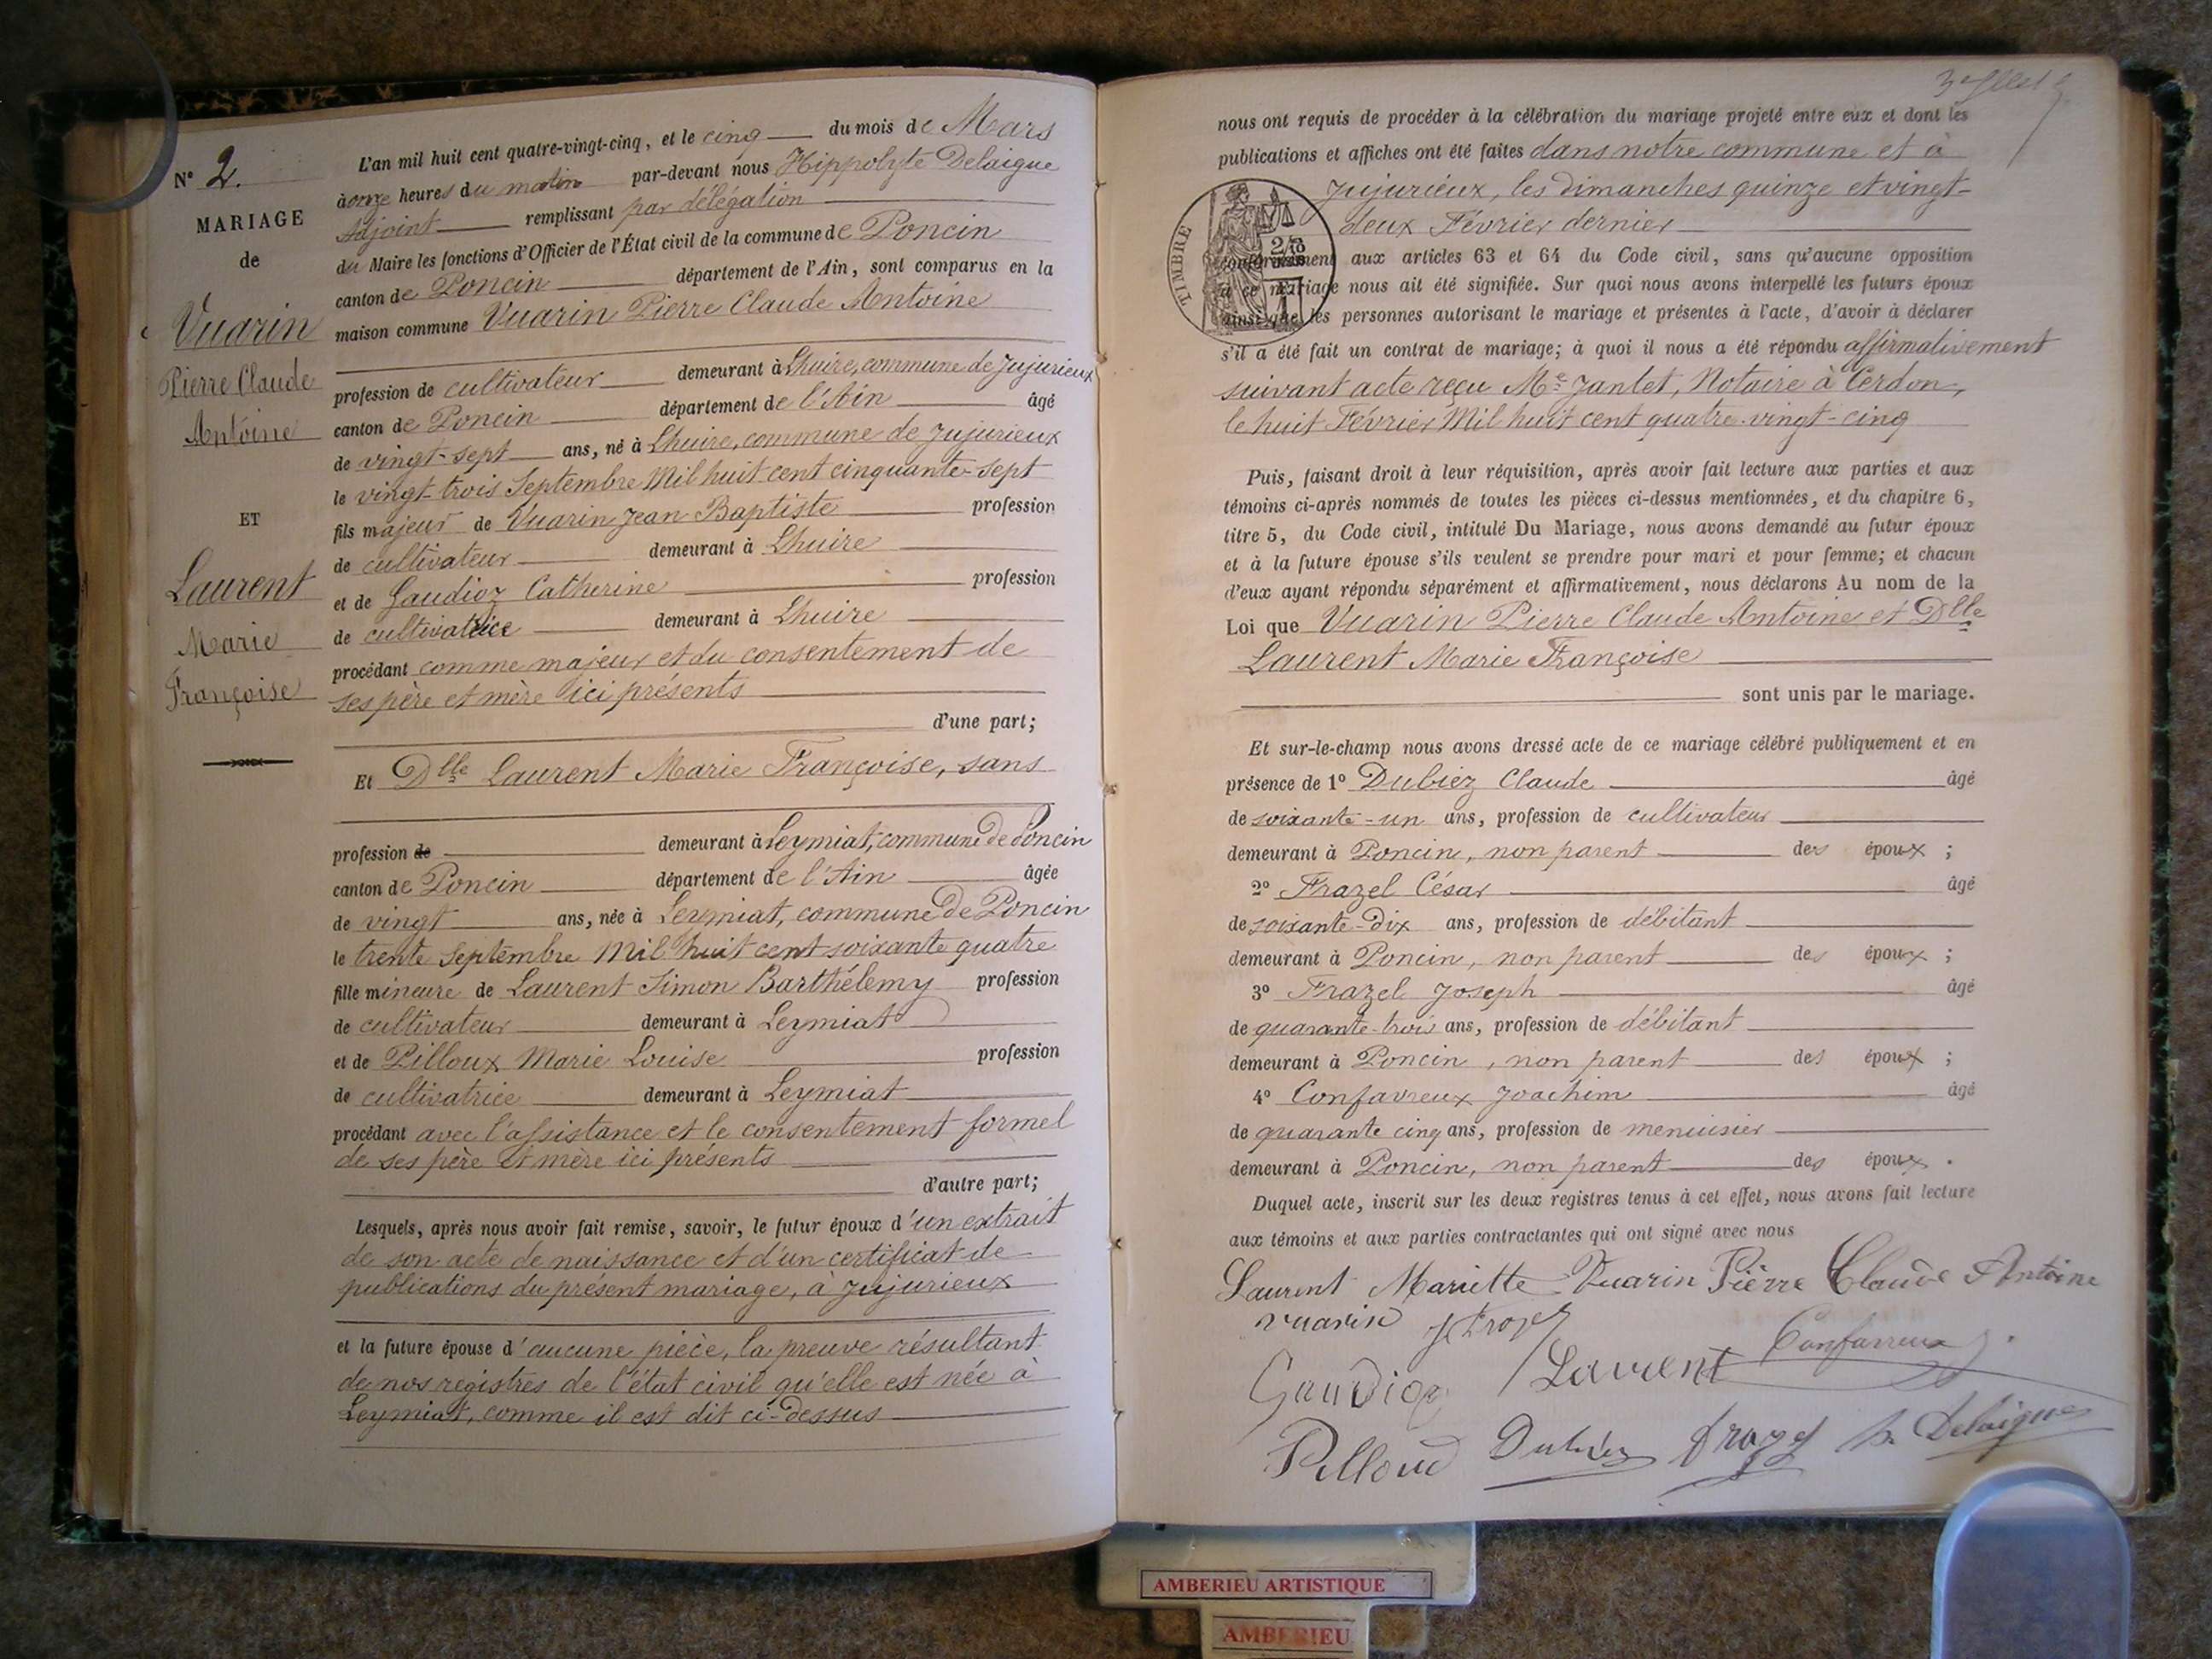 N° 2.
MARIAGE
de
Vuarin
Pierre Claude
Antoine
ET
Laurent
Marie
Françoise
L'an mil huit cent quatre-vingt-cinq, et le cinq du mois de Mars
à onze heures du matin par-devant nous Hippolyte Delaigue
Adjoint remplissant par délégation
du Maire les fonctions d'Officier de l'État civil de la commune de Poncin
canton de Poncin département de l'Ain, sont comparus en la
maison commune Vuarin Pierre Claude Antoine
profession de cultivateur demeurant à Lhuire, commune de Jujurieux
canton de Poncin département de l'Ain âgé
de vingt-sept ans, né à Lhuire, commune de Jujurieux
le vingt-trois Septembre Mil huit cent cinquante-sept
fils majeur de Vuarin Jean Baptiste profession
de cultivateur demeurant à Lhuire
et de Gaudioz Catherine profession
de cultivatrice demeurant à Lhuire
procédant comme majeur et du consentement de
ses père et mère ici présents
d'une part;
Et Dlle Laurent Marie Françoise, sans
profession de demeurant à Leymiat, commune de Poncin
canton de Poncin département de l'Ain âgée
de vingt ans, née à Leymiat, commune de Poncin
le trente Septembre Mil huit cent soixante quatre
fille mineure de Laurent Simon Barthélemy profession
de cultivateur demeurant à Leymiat
et de Pilloux Marie Louise profession
de cultivatrice demeurant à Leymiat
procédant avec l'assistance et le consentement formel
de ses père et mère ici présents
d'autre part;
Lesquels, après nous avoir fait remise, savoir, le futur époux d'un extrait
de son acte de naissance et d'un certificat de
publications du présent mariage, à Jujurieux
et la future épouse d'aucune pièce, la preuve résultant
de nos registres de l'état civil qu'elle est née à
Leymiat, comme il est dit ci-dessus
nous ont requis de procéder à la célébration du mariage projeté entre eux et dont les
publications et affiches ont été faites dans notre commune et à
Jujurieux, les dimanches quinze et vingt-
deux Février dernier
TIMBRE
conformément aux articles 63 et 64 du Code civil, sans qu'aucune opposition
à ce mariage nous ait été signifiée. Sur quoi nous avons interpellé les futurs époux
ainsi que les personnes autorisant le mariage et présentes à l'acte, d'avoir à déclarer
s'il a été fait un contrat de mariage; à quoi il nous a été répondu affirmativement
suivant acte reçu Me Jantet, Notaire à Cerdon,
le huit Février Mil huit cent quatre-vingt-cinq
Puis, faisant droit à leur réquisition, après avoir fait lecture aux parties et aux
témoins ci-après nommés de toutes les pièces ci-dessus mentionnées, et du chapitre 6,
titre 5, du Code civil, intitulé Du Mariage, nous avons demandé au futur époux
et à la future épouse s'ils veulent se prendre pour mari et pour femme; et chacun
d'eux ayant répondu séparément et affirmativement, nous déclarons Au nom de la
Loi que Vuarin Pierre Claude Antoine et Dlle
Laurent Marie Françoise
sont unis par le mariage.
Et sur-le-champ nous avons dressé acte de ce mariage célébré publiquement et en
présence de 1° Dubiez Claude âgé
de soixante-un ans, profession de cultivateur
demeurant à Poncin, non parent des époux ;
2° Frazel César âgé
de soixante-dix ans, profession de débitant
demeurant à Poncin, non parent des époux ;
3° Frazel Joseph âgé
de quarante-trois ans, profession de débitant
demeurant à Poncin, non parent des époux ;
4° Confavreux Joachim âgé
de quarante cinq ans, profession de menuisier
demeurant à Poncin, non parent des époux .
Duquel acte, inscrit sur les deux registres tenus à cet effet, nous avons fait lecture
aux témoins et aux parties contractantes qui ont signé avec nous
Laurent Mariette Vuarin Pièrre Claude Antoine
vuarin
Gaudioz Laurent Confavreux
Pilloud Dubiez Frazel h. Delaigue
AMBERIEU ARTISTIQUE
AMBERIEU